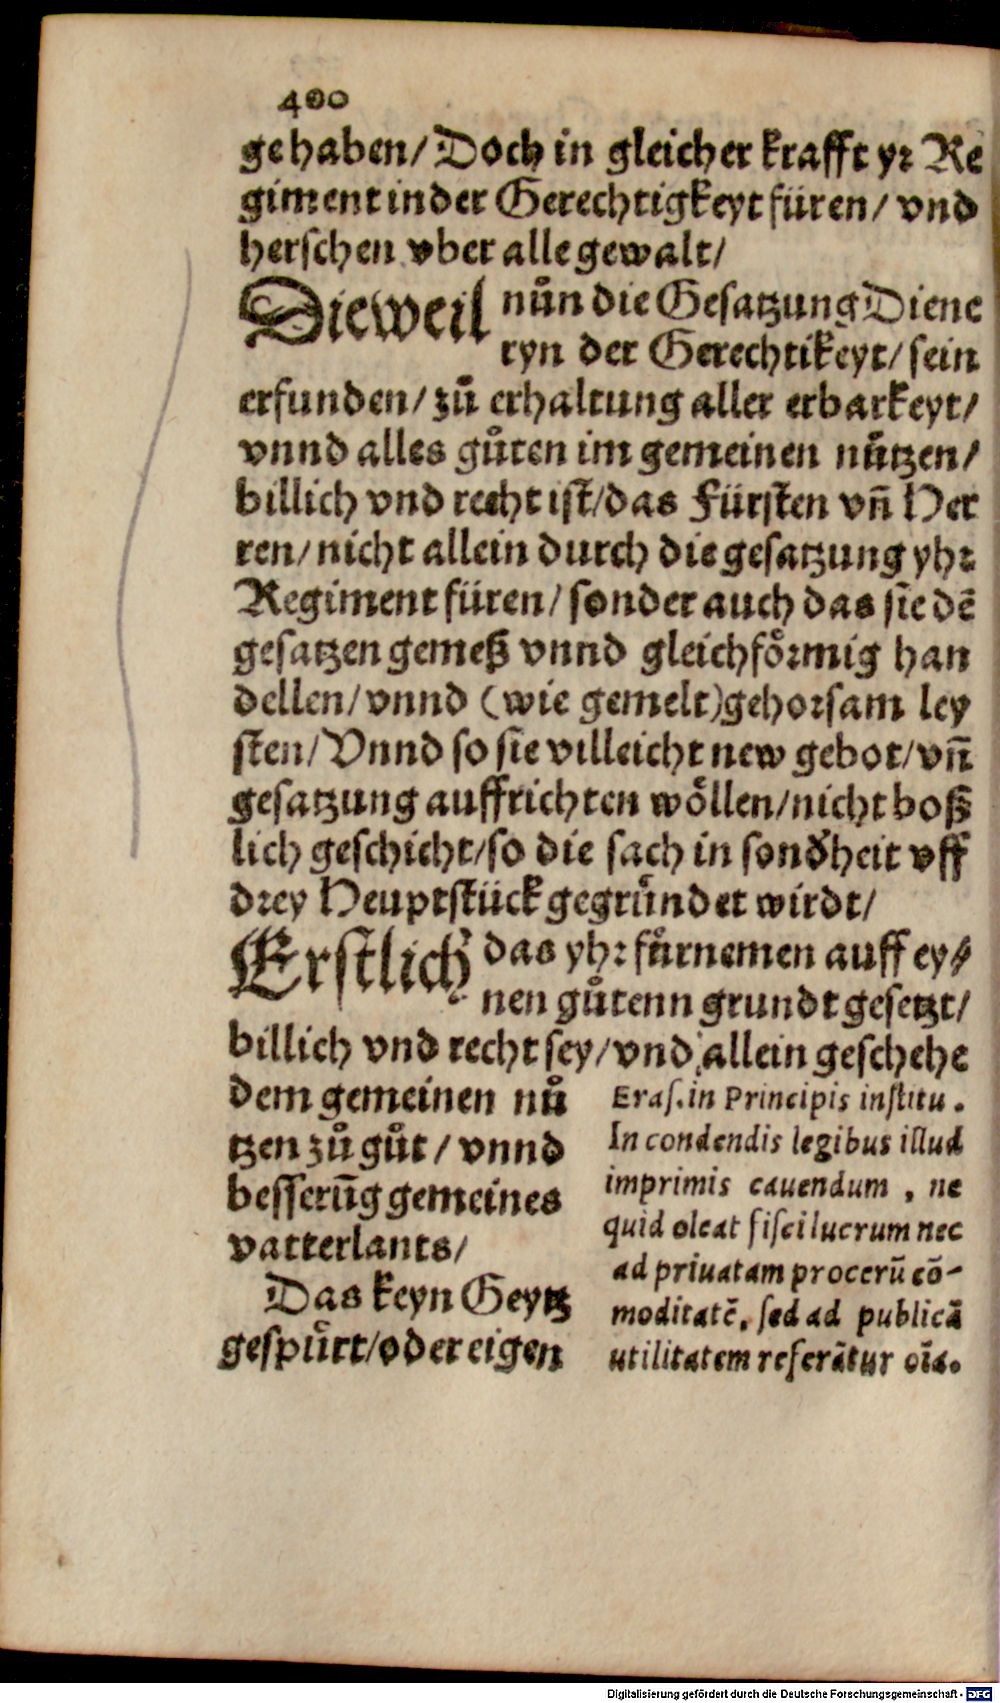 400
gehaben/ Doch in gleicher krafft yr Re
giment in der Gerechtigkeyt füren/ vnd
herschen vber alle gewalt/
Dieweil nůn die Gesatzung Diene
ryn der Gerechtikeyt/ sein
erfunden/ zů erhaltung aller erbarkeyt/
vnnd alles gůten im gemeinen nůtzen/
billich vnd recht ist/ das Fürsten vn̄ Her
ren/ nicht allein durch die gesatzung yhr
Regiment füren/ sonder auch das sie dē
gesatzen gemeß vnnd gleichfoͤrmig han
dellen/ vnnd (wie gemelt) gehorsam ley
sten/ Vnnd so sie villeicht new gebot/ vn̄
gesatzung auffrichten woͤllen/ nicht boß
lich geschicht/ so die sach in sonďheit vff
drey Heuptstück gegründet wirdt/
Erstlich das yhr fůrnemen auff ey⸗
nen gůtenn grundt gesetzt/
billich vnd recht sey/ vnd allein geschehe
dem gemeinen nů
tzen zů gůt / vnnd
besserūg gemeines
vatterlants/
Das keyn Geytz
gespürt/ oder eigen
Eras. in Principis institu.
In condendis legibus illud
imprimis cauendum , ne
quid oleat fisci lucrum nec
ad priuatam procerū cō-
moditatē, sed ad publicā
utilitatem referātur oīa.
Digitalisierung gefördert durch die Deutsche Forschungsgemeinschaft - DFG